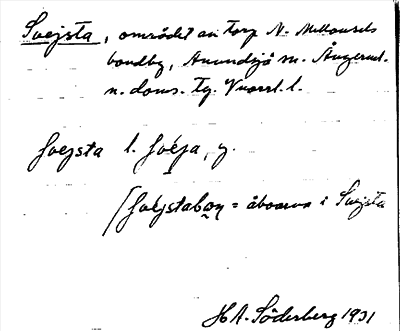 Svejsta, området an torp N. Mellansels
bondby, Anundsjö sn. Ångerml.
n. doms. Tg.
svejsta l. svéja, y.
[svéjstaboŋ = åboarna i Svejsta
H A. Söderberg 1931